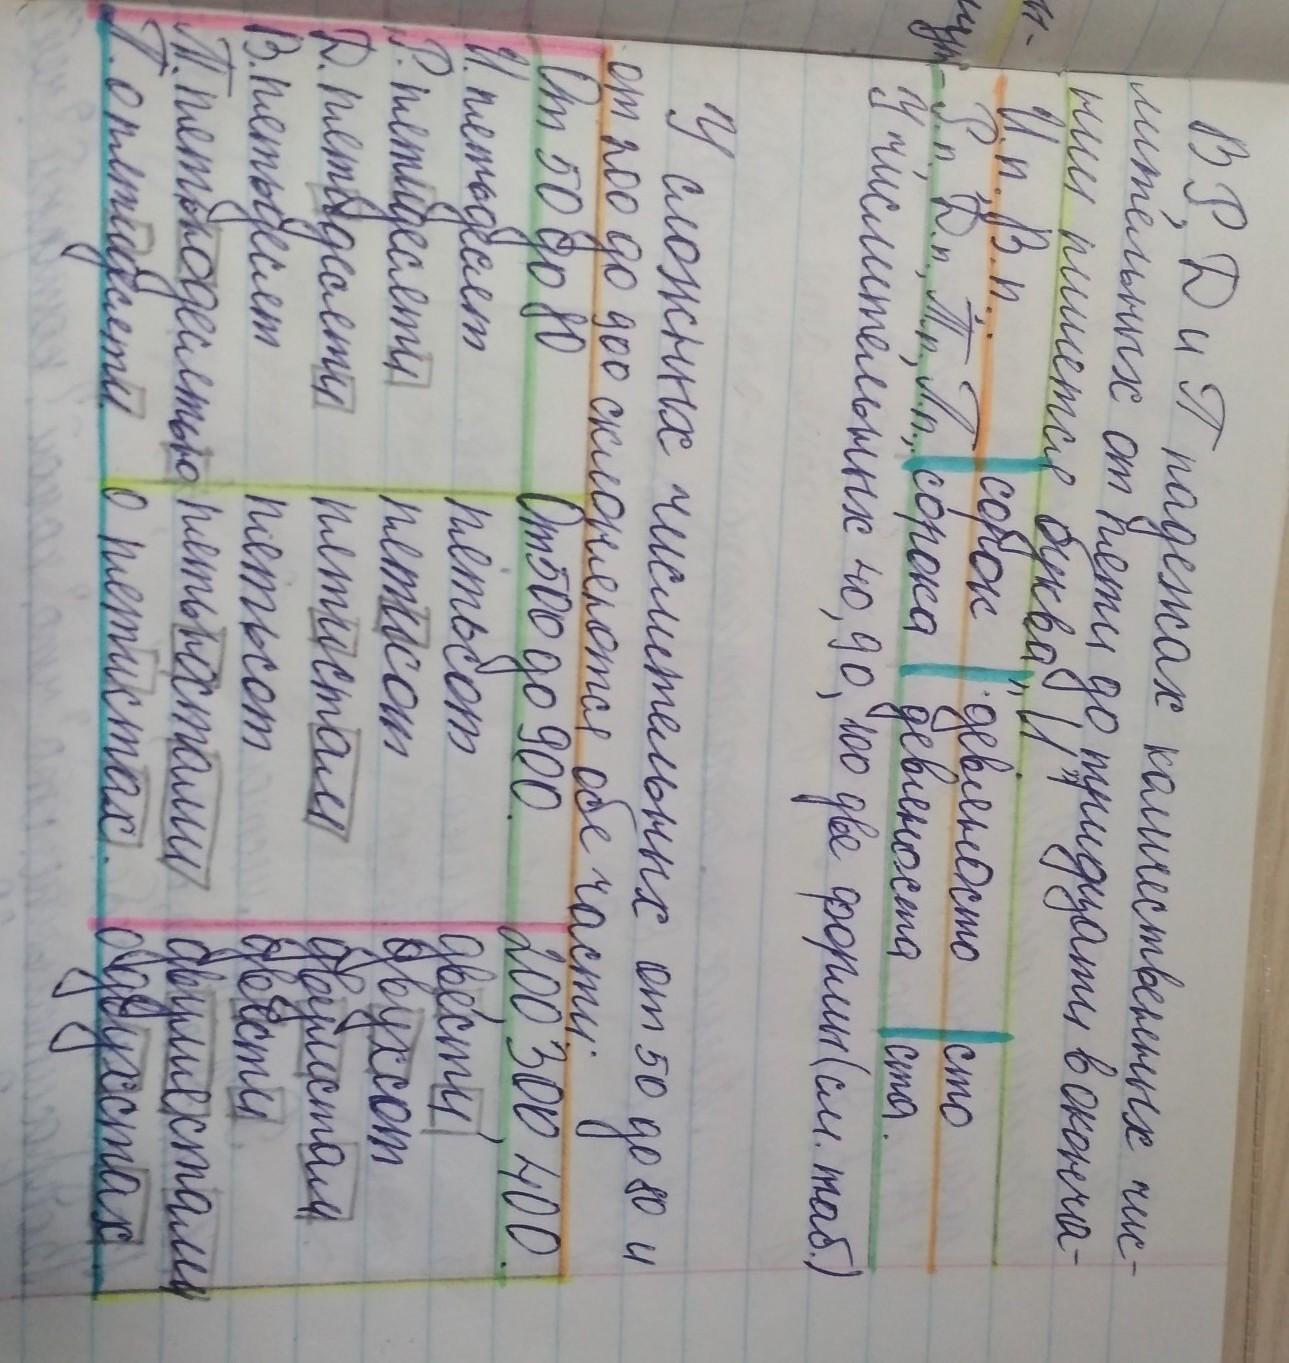 В Р, Д и П падежах количественных чис-
лительных от пяти до тридцати в оконча-
нии пишется буква „И".
И.п., В.п.: сорок девяносто сто
Р.п., Д.п., Т.п., П.п., сорока девяноста ста.
У числительных 40, 90, 100 две формы (см. таб.)
У сложных числительных от 50 до 80 и
от 200 до 900 склоняются обе части:
От 50 до 80 От 500 до 900. 200, 300, 400.
И. пятьдесят пятьсот двести,
Р. пятидесяти пятисот двухсот
Д. пятидесяти пятистам двумстам
В. пятьдесят пятьсот двести
Т. пятьюдесятью пятьюстами двумястами
П. о пятидесяти о пятистах. о двухстах